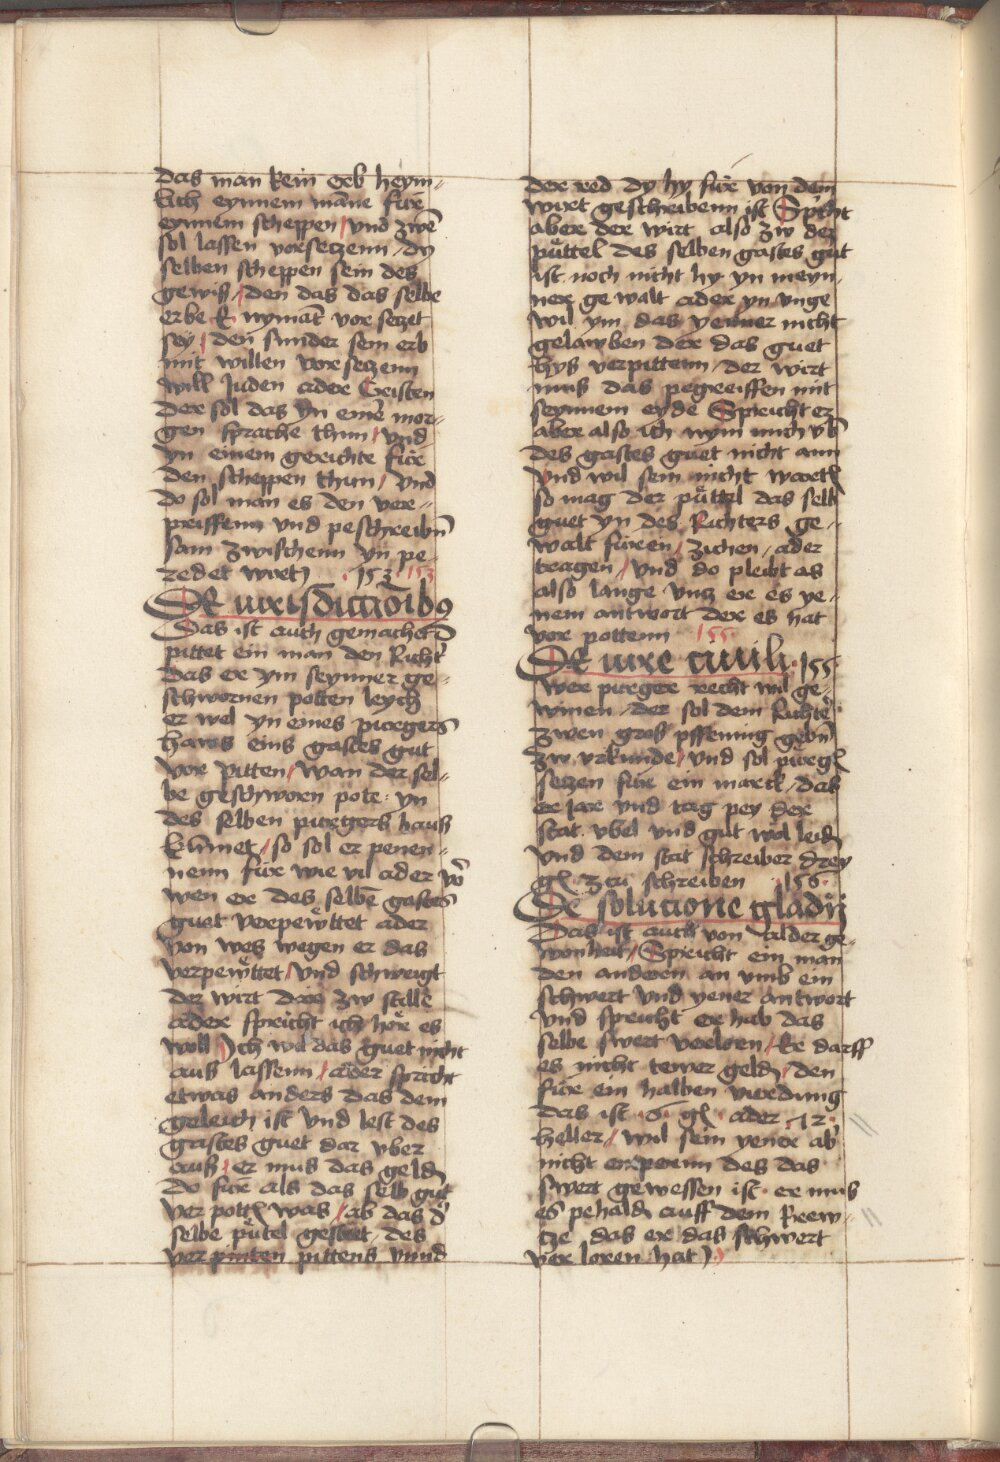 das man kein erb heym-
lich eynnem manne fur
eynnem scheppen / vnd zwe
sol lassen vorsetzenn / dy
selben scheppen sein des
gewis / den das das selbe
erbe k nymāt vor setzet
sey / den sunder sein erb
mit willen vorsetzenn
will Juden ader Cristen
der sol das yn eine mor-
gen sprache thun / vnd
yn einem gerichte fur
den scheppen thun / vnd
do sol man es den ver-
priffenn vnd peschreibn̄
sam zwischenn yn pe-
redet wirt) 153 153
De iurisdictōibꝯ
Das ist auch gemacht
pittet ein man den Richt̄
das er ym seynner ge-
schwornen potten leych
er wel yn eines purgers
haus eins gastes gut
vor pitten / wan der sel-
be geschworn pote yn
des selben purgers haus
kūmet / so sol er penen-
nenn fur wie vil ader vō
wen er des selbē gastes
guet verpewttet ader
von wes wegen er das
verpewttet / vnd schweigt
der wirt dar zw stille
ader spricht ich hör es
woll Ich wil das guet nicht
aus lassenn / ader spricht
etwas anders das dem
geleich ist vnd lest des
gastes guet dar vber
aus / er mus das geld
do fur als das selb gut
ver pott was / ab das d̄
selbe pütel gestet des
ver pinten pittens vnnd
der red dy hy fur von dem
wirt geschribenn ist Spricht
aber der wirt also zw der
püttel des selben gastes gut
ist noch nicht hy yn meyn-
ner gewalt ader yn vnge
wil ym das yenner nicht
gelawben der das guet
hys verpittenn / der wirt
mus das pegreiffen mit
seynnem eyde Spricht er
aber also ich nym mich vb̄
des gastes guet nicht ann
vnd wil sein nicht wartn
so mag der püttel das selb
guet yn des Richters ge-
walt furen / zichen / ader
tragen / vnd do pleibt as
also lange vntz er es ye-
nem antwort der es hat
vor pottenn 155
De iure ciuili 155
Wer purger recht wil ge-
winen / der sol dem Richter
zwen gros pffennig gebn̄
zw vrkunde / vnd sol purgn
setzen fur ein marck / das
er jar vnd tag pey der
stat vbel vnd gut wol leid
vnd dem stat schreiber drey
gl zcu schreiben 156
De solucione gladij
Das ist auch von alder ge-
wonheit / Spricht ein man
den anderen an vmb ein
schwert vnd yener antwort
vnd spricht er hab das
selbe swert verloren / Er darff
es nicht tewer geldn / den
fur ein halben vierdung
das ist 6 gl ader 12
heller / wil sein yener ab̄
nicht enperenn des das
swert gewessen ist er mus
es pehaldn auff dem krew-
tze das er das schwert
ver loren hat)